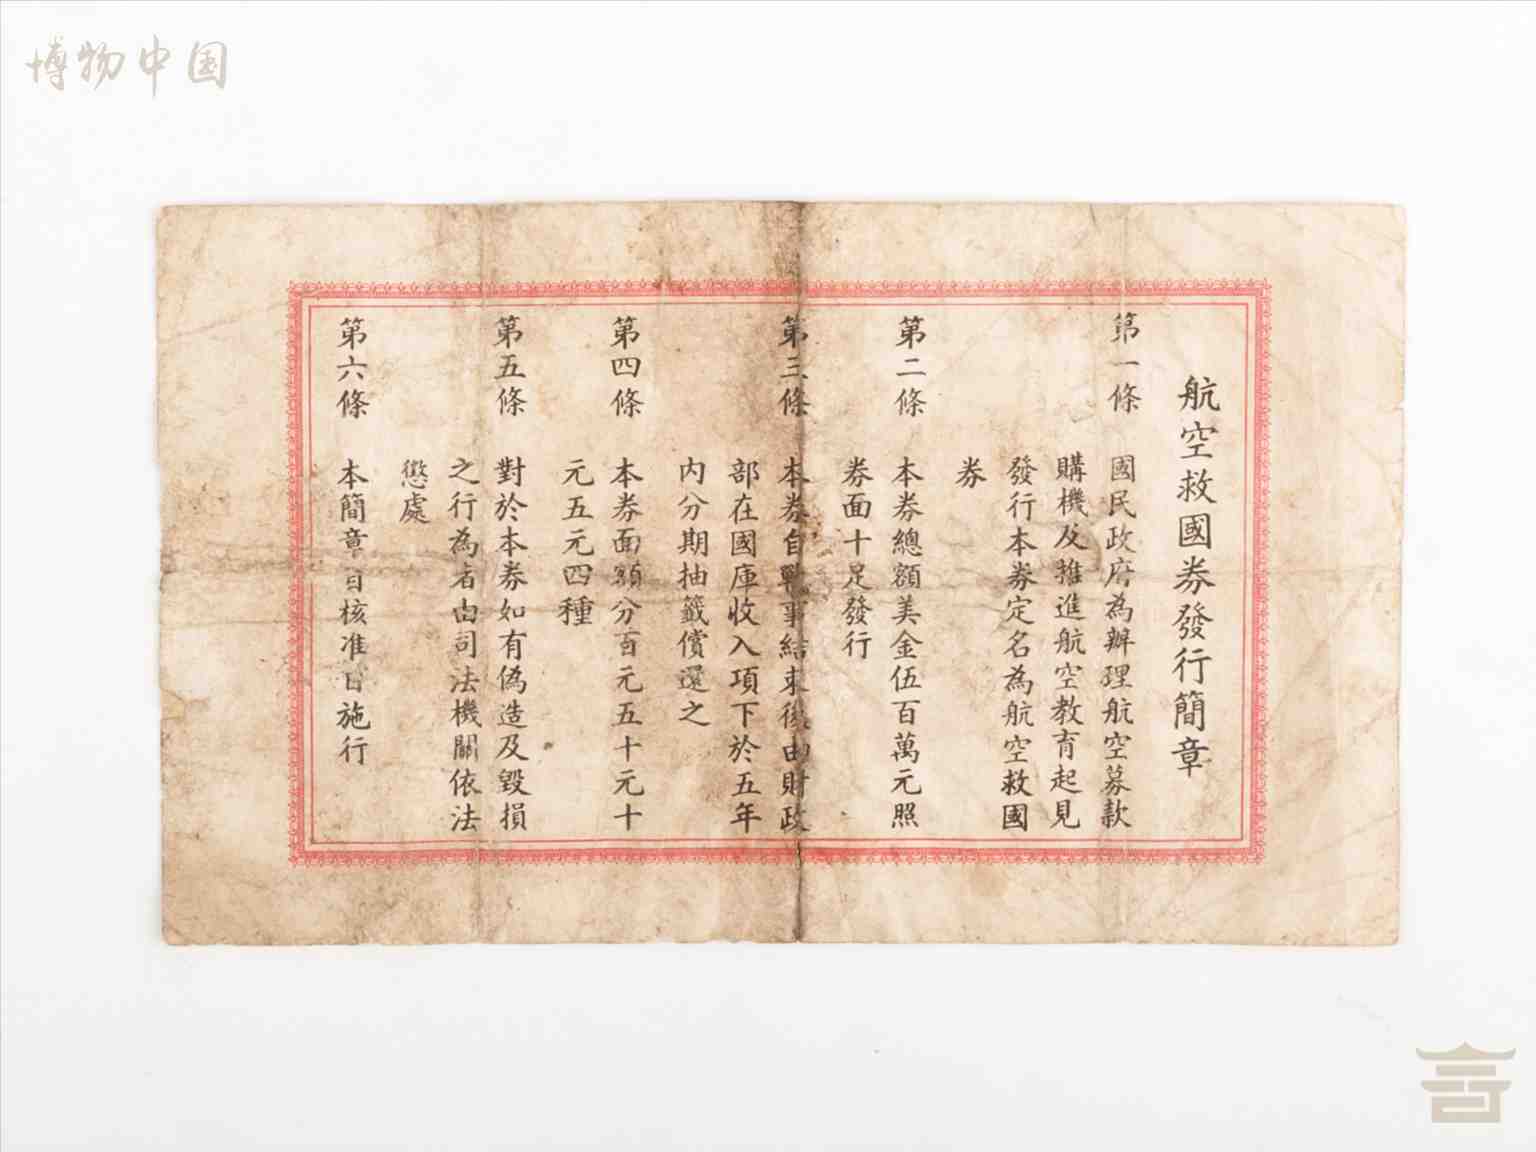 博物中国
航空救國券發行簡章
第一條 國民政府為辦理航空募款
購機及推進航空教育起見
發行本券定名為航空救國
券
第二條 本券總額美金伍百萬元照
券面十足發行
第三條 本券自戰事結束後由財政
部在國庫收入項下於五年
內分期抽籤償還之
第四條 本券面額分百元五十元十
元五元四種
第五條 對於本券如有偽造及毀損
之行為者由司法機關依法
懲處
第六條 本簡章自核准日施行